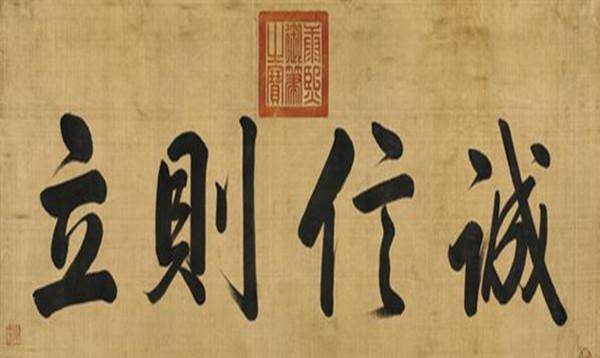 康熙御筆之寶
誠信則立